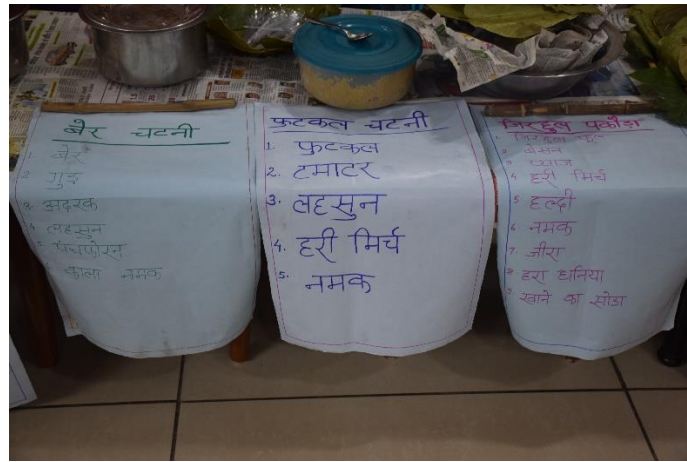 बेर चटनी
1. बेर
2. गुड़
3. अदरक
4. लहसुन
5. पंचफोरन
6. काला नमक
फुटकल चटनी
1. फुटकल
2. टमाटर
3. लहसुन
4. हरी मिर्च
5. नमक
पकौड़ा
2. बेसन
3 प्याज
4 हरी मिर्च
5 हल्दी
6 नमक
7 जीरा
8 हरा धनिया
9 खाने का सोडा